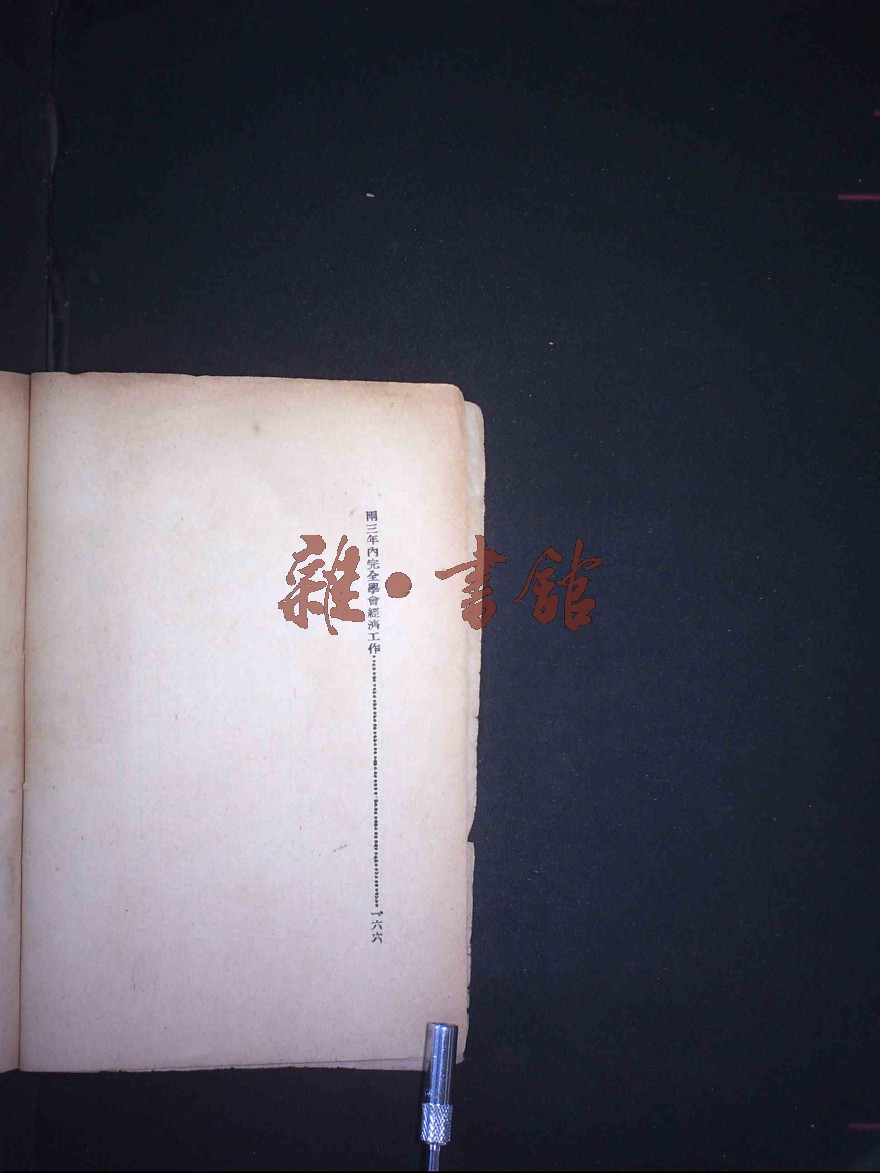 兩三年內完全學會經濟工作……一六六
雜·書館